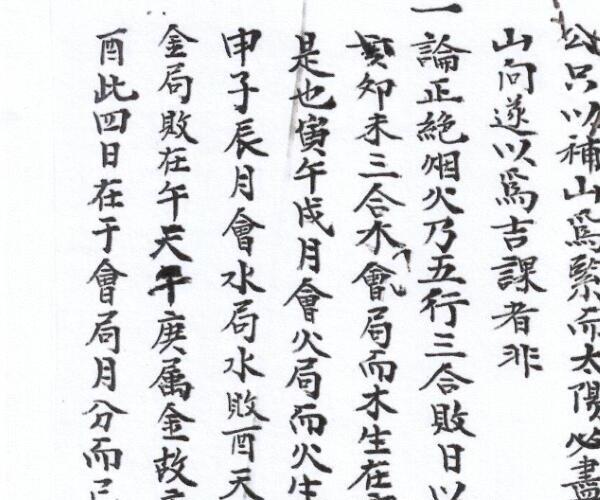 公只以補山爲緊而太陽必盡
山向遂以爲吉課者非
一論正絶烟火乃五行三合敗日以
亥卯未三合木會局而木生在
是也寅午戌月會火局而火生
申子辰月會水局水敗酉天
金局敗在午天干庚属金故
酉此四日在于會局月分而已